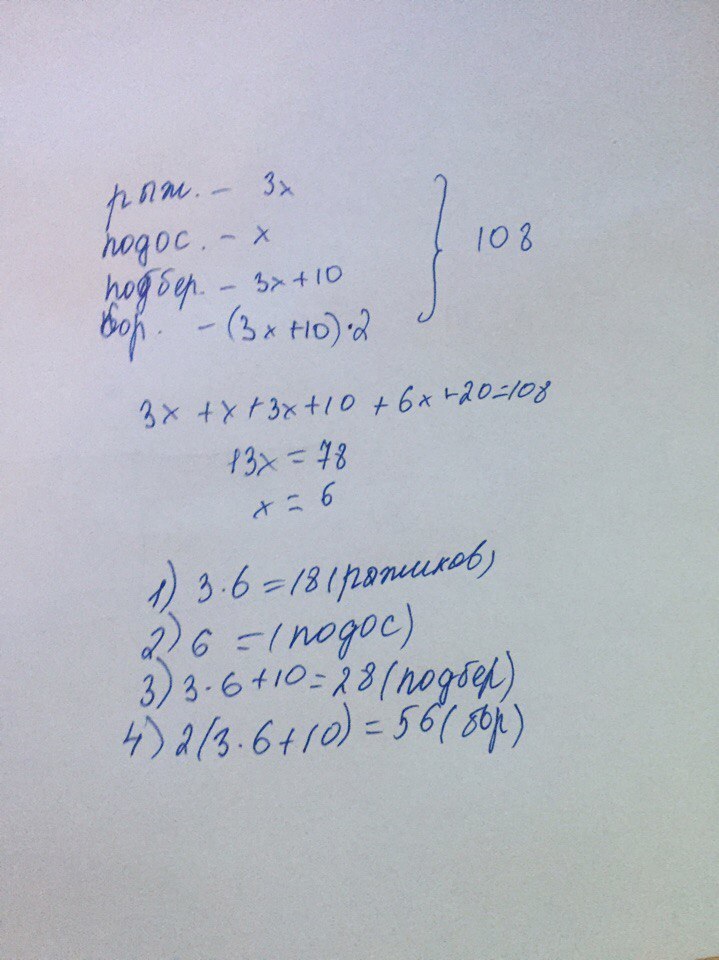 рыж. - 3x
подос. - x
подбер. - 3x+10
бор. - (3x+10)·2
} 108
3x + x + 3x+10 + 6x+20=108
13x = 78
x = 6
1) 3·6 = 18 (рыжиков)
2) 6 = (подос)
3) 3·6+10=28 (подбер)
4) 2(3·6+10) = 56 (бор)